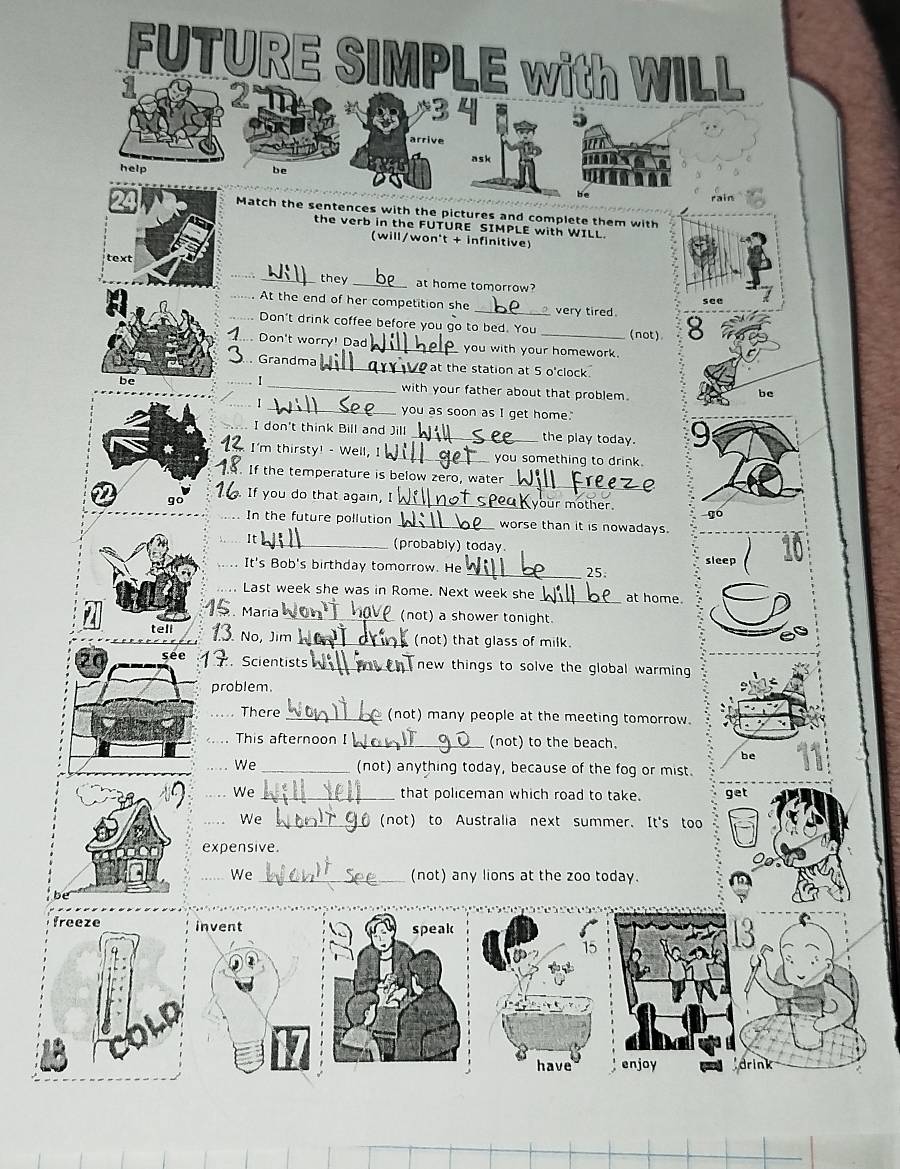 FUTURE SIMPLE with WILL
1 2 3 4 5
arrive
ask
help
be
be
rain
24
Match the sentences with the pictures and complete them with
the verb in the FUTURE SIMPLE with WILL.
(will/won't + infinitive)
text
see 7
..... Will they be at home tomorrow?
...... At the end of her competition she be very tired.
...... Don't drink coffee before you go to bed. You __________ (not).
8
1.... Don't worry! Dad Will help you with your homework.
3... Grandma Will arrive at the station at 5 o'clock.
be
...... I __________ with your father about that problem.
be
...... I Will See you as soon as I get home.
.... I don't think Bill and Jill Will see the play today.
9
12. I'm thirsty! - Well, I Will get you something to drink.
18. If the temperature is below zero, water Will Freeze
22 go
16. If you do that again, I Will not speak your mother.
go
.... In the future pollution Will be worse than it is nowadays.
..... It Will (probably) today.
sleep 10
.... It's Bob's birthday tomorrow. He Will be 25.
.... Last week she was in Rome. Next week she Will be at home.
21 tell
15. Maria Won't have (not) a shower tonight.
13. No, Jim Won't drink (not) that glass of milk.
20 see
17. Scientists Will invent new things to solve the global warming
problem.
..... There Won't be (not) many people at the meeting tomorrow.
.... This afternoon I Won't go (not) to the beach.
be 11
.... We __________ (not) anything today, because of the fog or mist.
.... We Will tell that policeman which road to take.
get
.... We Won't go (not) to Australia next summer. It's too
expensive.
be
...... We Won't See (not) any lions at the zoo today.
freeze
invent
16
speak
15
13
COLD
18
17
have
enjoy
drink